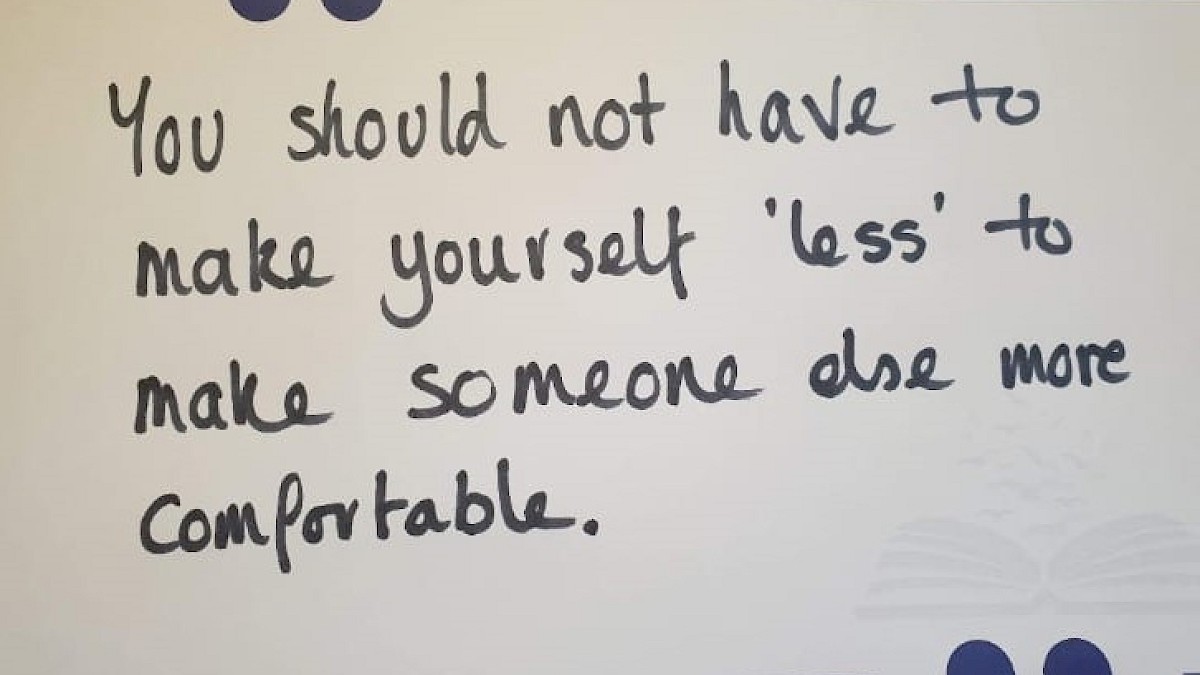 You should not have to
make yourself 'less' to
make someone else more
comfortable.